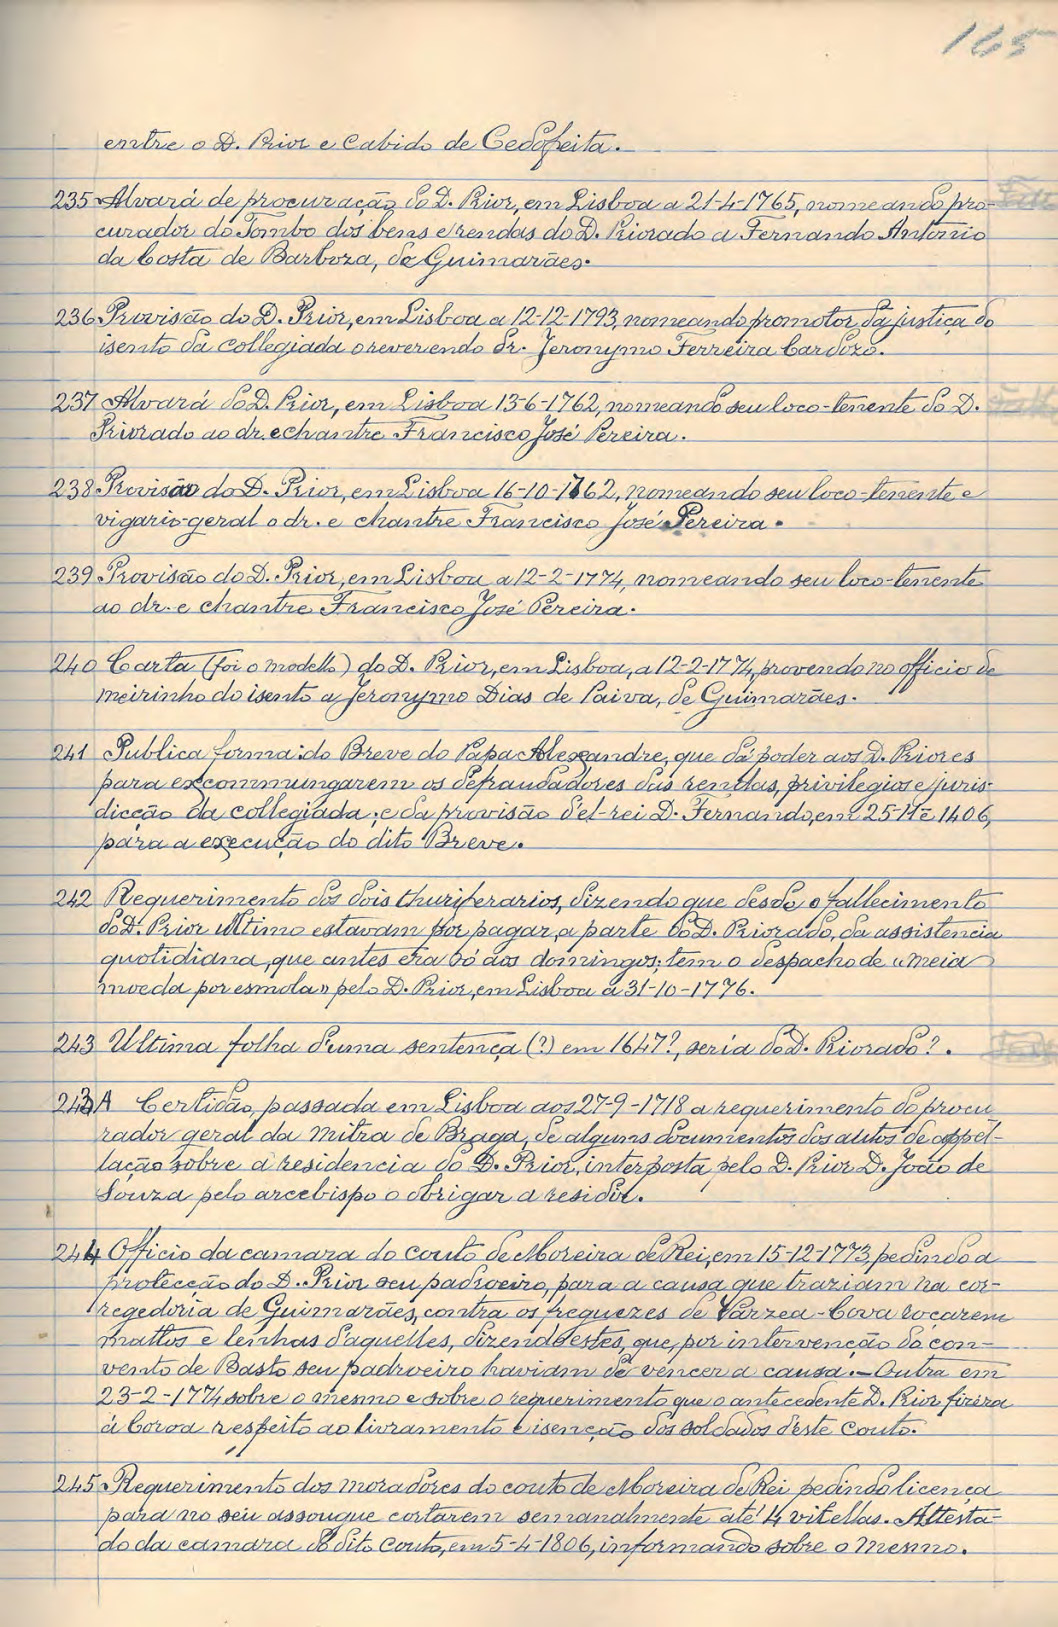 165
entre o D. Prior e Cabido de Cedofeita.
235 Alvará de procuração do D. Prior, em Lisboa a 21-4-1765, nomeando pro-
curador do Tombo dos bens e rendas do D. Priorado a Fernando Antonio
da Costa de Barboza, de Guimarães.
236 Provisão do D. Prior, em Lisboa a 12-12-1793, nomeando promotor da justiça do
isento da collegiada o reverendo Dr. Jeronymo Ferreira Cardozo.
237 Alvará do D. Prior, em Lisboa 13-6-1762, nomeando seu loco-tenente do D.
Priorado ao dr. e chantre Francisco José Pereira.
238 Provisão do D. Prior, em Lisboa 16-10-1762, nomeando seu loco-tenente e
vigario-geral o dr. e chantre Francisco José Pereira.
239 Provisão do D. Prior, em Lisboa a 12-2-1774, nomeando seu loco-tenente
ao dr. e chantre Francisco José Pereira.
240 Carta (foi o modello) do D. Prior, em Lisboa, a 12-2-1774, provendo no officio de
meirinho do isento a Jeronymo Dias de Paiva, de Guimarães.
241 Publica forma: do Breve do Papa Alexandre, que dá poder aos D. Priores
para excommungarem os defraudadores das rendas, privilegios e juris-
dicção da collegiada; e da provisão d'el-rei D. Fernando, em 25-11-e 1406,
para a execução do dito Breve.
242 Requerimento dos dois thuriferarios, dizendo que desde o fallecimento
do D. Prior ultimo estavam por pagar, a parte do D. Priorado, da assistencia
quotidiana, que antes era só aos domingos; tem o despacho de «meia
moeda por esmola» pelo D. Prior, em Lisboa a 31-10-1776.
243 Ultima folha d'uma sentença (?) em 1647?, seria do D. Priorado?.
243A Certidão, passada em Lisboa aos 27-9-1718 a requerimento do procu
rador geral da Mitra de Braga, de alguns documentos dos autos de appel-
lação sobre a residencia do D. Prior, interposta pelo D. Prior D. João de
Souza pelo arcebispo o obrigar a residir.
244 Officio da camara do couto de Moreira de Rei, em 15-12-1773, pedindo a
protecção do D. Prior seu padroeiro, para a causa que traziam na cor-
regedoria de Guimarães, contra os freguezes de Varzea-Cova roçarem
mattos e lenhas d'aquelles, dizendo estes, que, por intervenção do con-
vento de Basto seu padroeiro haviam de vencer a causa. — Outra em
23-2-1774 sobre o mesmo e sobre o requerimento que o antecedente D. Prior fizera
á Coroa respeito ao livramento e isenção dos soldados d'este Couto.
245 Requerimento dos moradores do couto de Moreira de Rei pedindo licença
para no seu assougue cortarem semanalmente até 4 vitellas. Attesta-
do da camara do dito Couto, em 5-4-1806, informando sobre o mesmo.